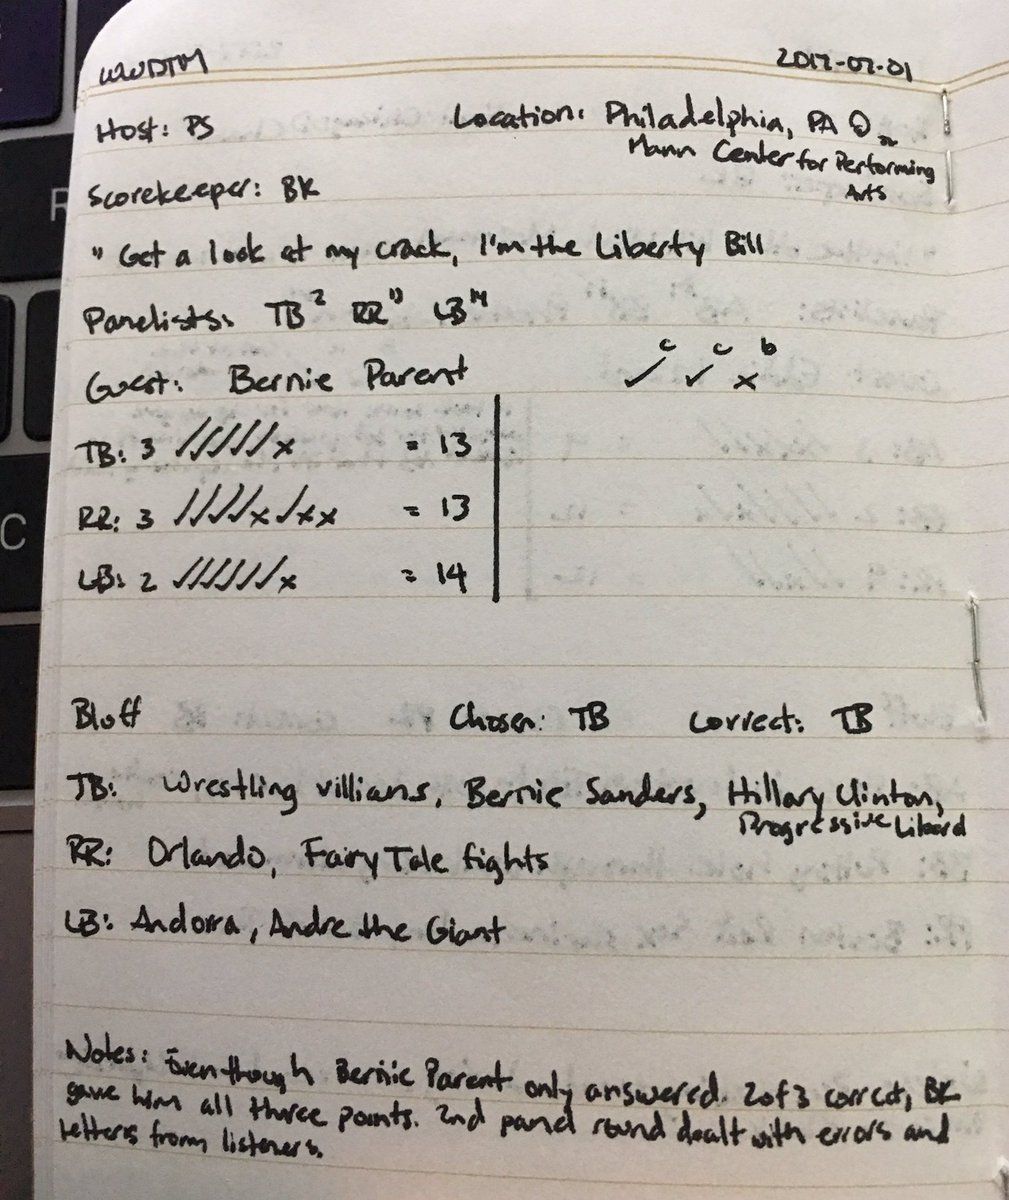 WWDTM 2017-07-01
Host: PS Location: Philadelphia, PA
Mann Center for Performing
Arts
Scorekeeper: BK
" Get a look at my crack, I'm the Liberty Bill
Panelists: TB² RR¹³ LB¹⁴
Guest: Bernie Parent ✓ c ✓ c x b
TB: 3 ✓✓✓✓✓x = 13
RR: 3 ✓✓✓✓x✓xx = 13
LB: 2 ✓✓✓✓✓✓x = 14
Bluff Chosen: TB Correct: TB
TB: Wrestling villians, Bernie Sanders, Hillary Clinton,
Progressive Liberal
RR: Orlando, Fairy Tale fights
LB: Andorra, Andre the Giant
Notes: Even though Bernie Parent only answered 2 of 3 correct, BK
gave him all three points. 2nd panel round dealt with errors and
letters from listeners.